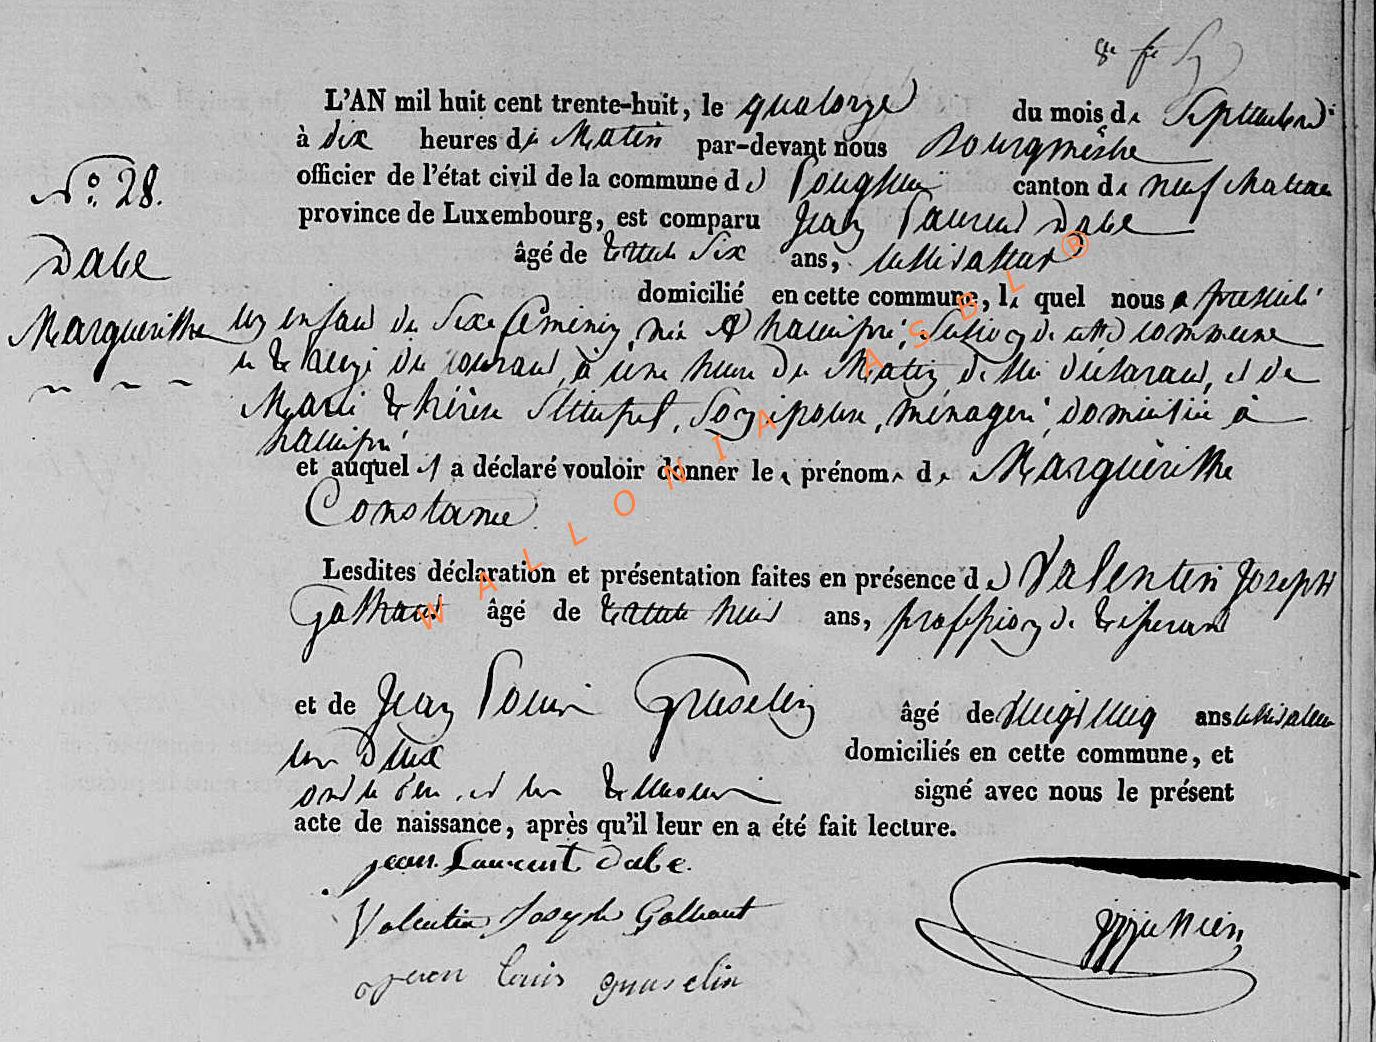 N.º 28.
Dabe
Margueritthe
L'AN mil huit cent trente-huit, le quatorze du mois de Septembre
à dix heures du Matin par-devant nous Bourgmestre
officier de l'état civil de la commune de canton de neufchateau
province de Luxembourg, est comparu Jean Laurent Dabe
âgé de trente Six ans, cultivateur
domicilié en cette commune, lequel nous a présenté
un enfant du Sexe féminin, née à hamipré, Section de cette commune
le treize du courant, à une heure du Matin, de lui déclarant, et de
Marie thérèse Son épouse, ménagère, domiciliée à
hamipré
et auquel il a déclaré vouloir donner les prénoms de Margueritthe
Constance
Lesdites déclaration et présentation faites en présence de Valentin Joseph
Galhaut âgé de trente huit ans, profession de tisserand
et de Jean Louis Gruselin âgé de vingt cinq ans cultivateur
les deux domiciliés en cette commune, et
ont le père et les témoins signé avec nous le présent
acte de naissance, après qu'il leur en a été fait lecture.
jean Laurent dabe.
Valentin Joseph Galhaut
jean louis gruselin
WALLONIA ASBL ®